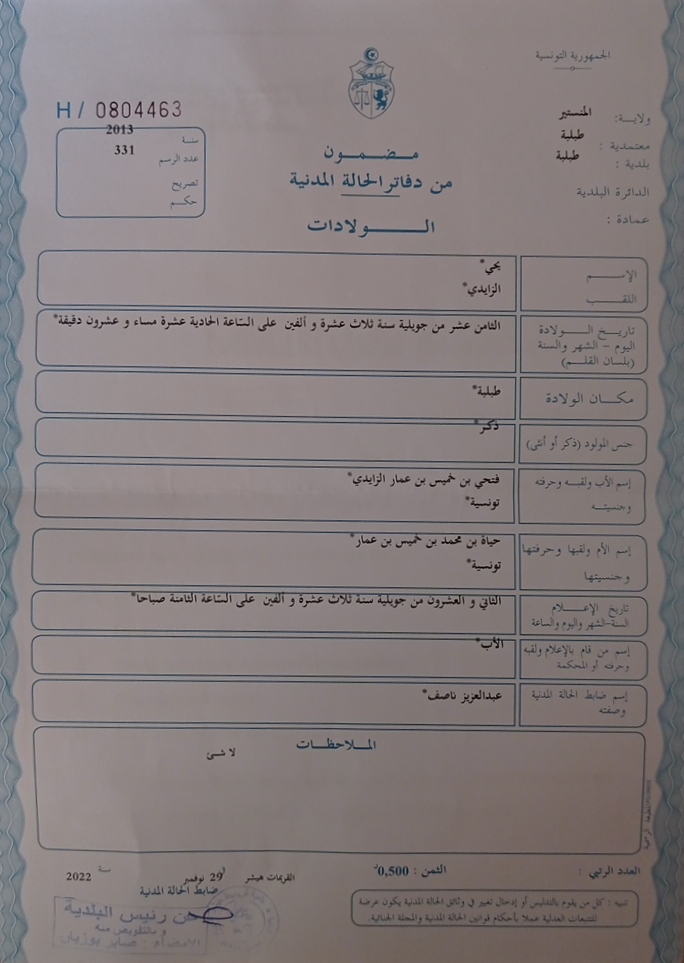 الجمهورية التونسية
ولاية: المنستير
معتمدية : طبلبة
بلدية : طبلبة
الدائرة البلدية
عمادة :
H / 0804463
سنة 2013
عدد الرسم 331
تصريح
حكم
مضمون
من دفاتر الحالة المدنية
الولادات
الإسم يحي*
اللقب الزايدي*
تاريخ الولادة
اليوم - الشهر والسنة
(بلسان القلم)
الثامن عشر من جويلية سنة ثلاث عشرة و ألفين على الساعة الحادية عشرة مساء و عشرون دقيقة*
مكان الولادة طبلبة*
جنس المولود (ذكر أو أنثى) ذكر*
إسم الأب ولقبه وحرفته فتحي بن خميس بن عمار الزايدي*
وجنسيته تونسية*
إسم الأم ولقبها وحرفتها حياة بن محمد بن خميس بن عمار*
وجنسيتها تونسية*
تاريخ الإعلام
السنة-الشهر واليوم والساعة
الثاني و العشرون من جويلية سنة ثلاث عشرة و ألفين على الساعة الثامنة صباحا*
إسم من قام بالإعلام ولقبه
وحرفته أو المحكمة
الأب*
إسم ضابط الحالة المدنية
وصفته
عبدالعزيز ناصف*
الملاحظات
لا شئ
العدد الرتبي :
الثمن : 0,500د
تنبيه : كل من يقوم بالتدليس أو إدخال تغيير في وثائق الحالة المدنية يكون عرضة
للتتبعات العدلية عملا بأحكام قوانين الحالة المدنية والمجلة الجنائية.
29 نوفمبر سنة 2022
ضابط الحالة المدنية
عن رئيس البلدية
و بالتفويض منه
الامضاء : صابر بوزيان